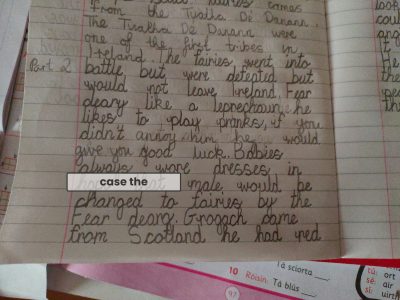 From the Tuatha Dé Danann.
The Tuatha Dé Danann were
one of the first tribes in
Ireland. The fairies went into
Part 2 battle but were defeated but
would not leave Ireland. Fear
deary like a leprechaun he
likes to play pranks, if you
didn't annoy him he would
give you good luck. Babies
always wore dresses in
case the male would be
changed to fairies by the
Fear dearg. Grogach came
from Scotland he had red
Tá sciorta
10 Róisín: Tá blús
97
tú: ort
sé: air
sí: uirthi